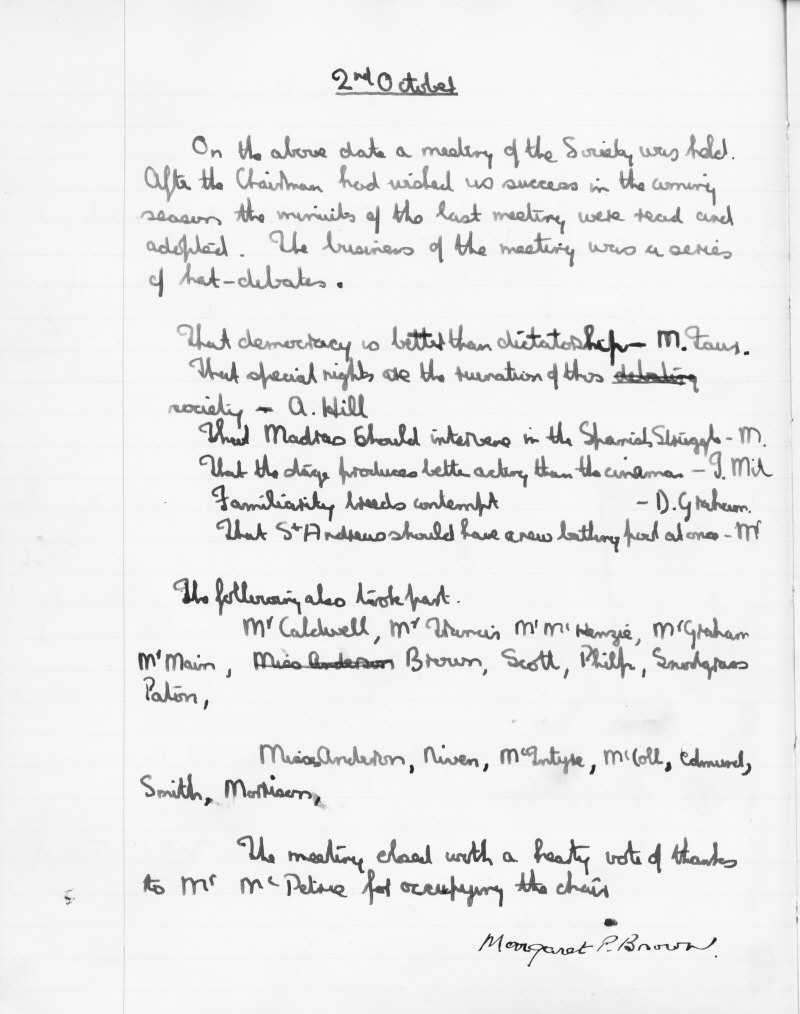 2nd October
On the above date a meeting of the Society was held.
After the Chairman had wished us success in the coming
season the minuits of the last meeting were read and
adopted. The business of the meeting was a series
of hat-debates.
That democracy is better than dictatorship - M.
That special rights are the ruination of this debating
society - A. Hill
That Madras should intervene in the Spanish Struggle - M.
That the stage produces better acting than the cinema -
Familiarity breeds contempt - D. Graham.
That St Andrews should have a new bathing pool at once - Mr
The following also took part.
Mr Caldwell, Mr Francis Mr McKenzie, Mr Graham
Mr Main, Miss Anderson Brown, Scott, Philp, Snodgrass
Paton,
Misses Anderson, Niven, McIntyre, McColl, Edmund,
Smith, Morrison,
The meeting closed with a hearty vote of thanks
to Mr McPetrie for occupying the chair
Margaret P. Brown.